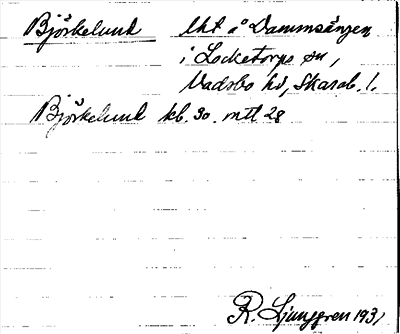 Björkelund lht å Dammsängen
i Locketorps sn,
Vadsbo hd, Skarab. l.
Björkelund kb. 30. mtl 28
R. Ljunggren 193